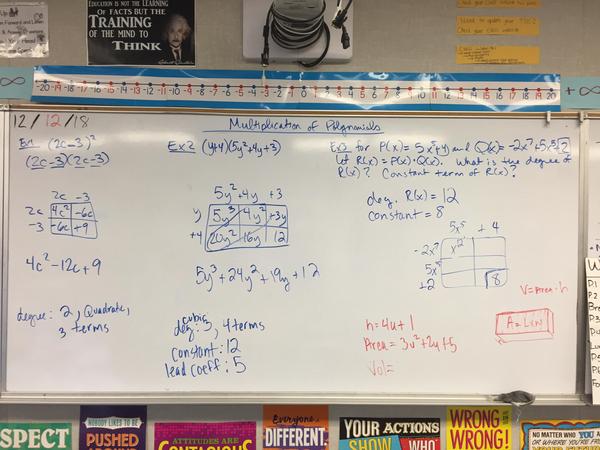 EDUCATION IS NOT THE LEARNING
OF FACTS BUT THE
TRAINING
OF THE MIND TO
THINK
-∞
-20 -19 -18 -17 -16 -15 -14 -13 -12 -11 -10 -9 -8 -7 -6 -5 -4 -3 -2 -1 0 1 2 3 4 5 6 7 8 9 10 11 12 13 14 15 16 17 18 19 20
+∞
12/12/18
Multiplication of Polynomials
Ex1 (2c-3)²
(2c-3)(2c-3)
2c -3
2c 4c² -6c
-3 -6c +9
4c²-12c+9
degree: 2, Quadratic,
3 terms
Ex2 (y+4)(5y²+4y+3)
5y²+4y +3
y 5y³ 4y² +3y
+4 20y² 16y 12
5y³+24y²+19y+12
cubic
deg: 3, 4 terms
constant: 12
lead coeff: 5
Ex3 for P(x)= 5x⁵+4) and Q(x)=-2x⁷+5x⁵+2
Let R(x)=P(x)·Q(x). What is the degree of
R(x)? Constant term of R(x)?
deg. R(x)=12
constant=8
5x⁵ +4
-2x⁷ x¹²
5x⁵
+2 8
V=Area·h
A=LxW
h=4u+1
Area=3u²+2u+5
Vol=
SPECT
NOBODY LIKES TO BE
PUSHED
AROUND
ATTITUDES ARE
CONTAGIOUS
Everyone
DIFFERENT.
YOUR ACTIONS
SHOW WHO
WRONG IS
WRONG!
NO MATTER WHO
YOU ARE